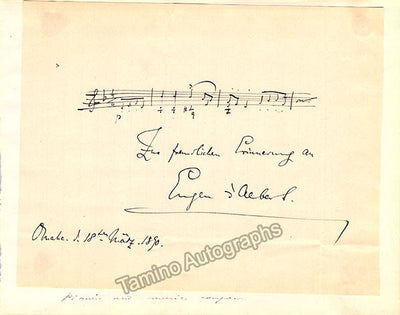 Zur freundlichen Erinnerung an
Eugen d'Albert.
d. 18ten März. 1890.
Tamino Autographs
Pianist and